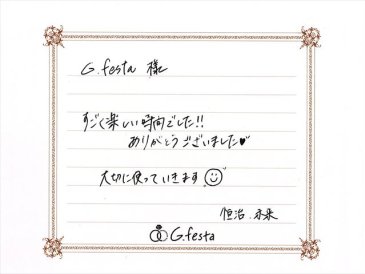 G.festa 様
すごく楽しい時間でした!!
ありがとうございました♥
大切に使っていきます。
恒治.未来
G.festa